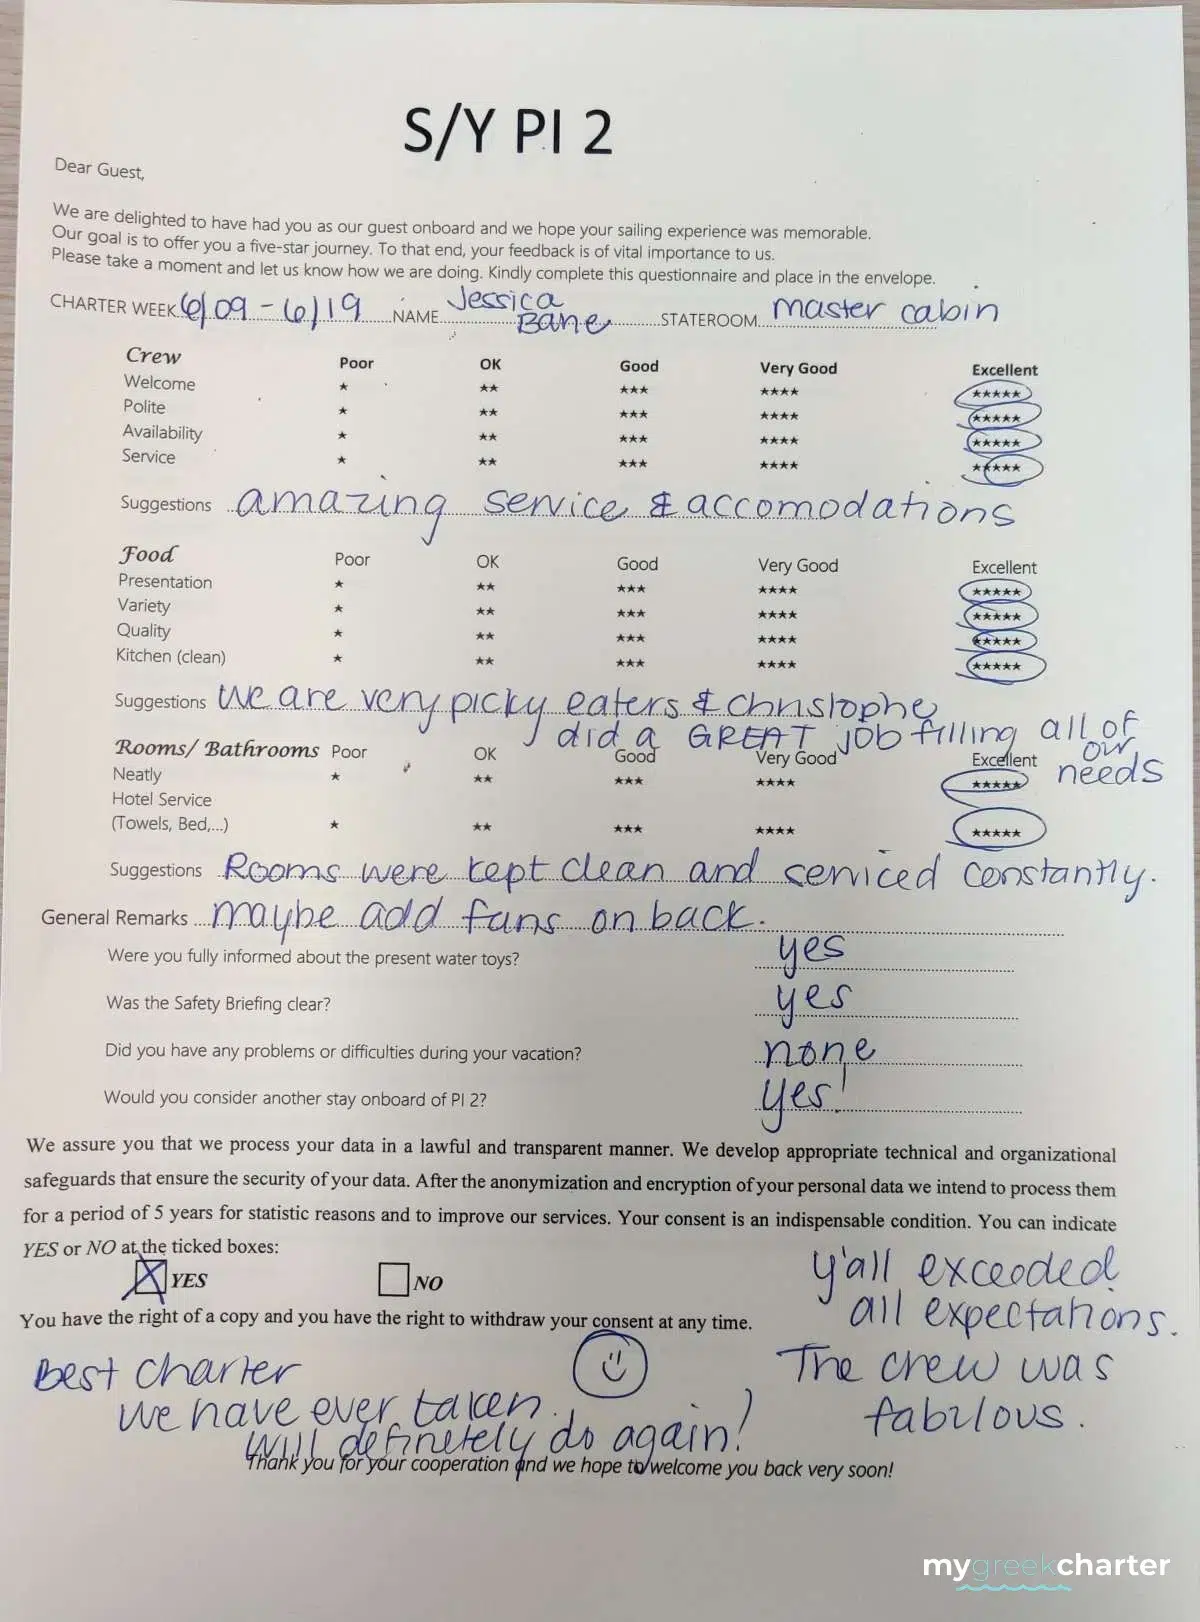 S/Y PI 2
Dear Guest,
We are delighted to have had you as our guest onboard and we hope your sailing experience was memorable.
Our goal is to offer you a five-star journey. To that end, your feedback is of vital importance to us.
Please take a moment and let us know how we are doing. Kindly complete this questionnaire and place in the envelope.
CHARTER WEEK 6/09 - 6/19 NAME Jessica Bane STATEROOM master cabin
Crew Poor OK Good Very Good Excellent
Welcome ★ ★★ ★★★ ★★★★ ★★★★★
Polite ★ ★★ ★★★ ★★★★ ★★★★★
Availability ★ ★★ ★★★ ★★★★ ★★★★★
Service ★ ★★ ★★★ ★★★★ ★★★★★
Suggestions amazing service & accomodations
Food Poor OK Good Very Good Excellent
Presentation ★ ★★ ★★★ ★★★★ ★★★★★
Variety ★ ★★ ★★★ ★★★★ ★★★★★
Quality ★ ★★ ★★★ ★★★★ ★★★★★
Kitchen (clean) ★ ★★ ★★★ ★★★★ ★★★★★
Suggestions We are very picky eaters & christophe
did a GREAT job filling all of our needs
Rooms/ Bathrooms Poor OK Good Very Good Excellent
Neatly ★ ★★ ★★★ ★★★★ ★★★★★
Hotel Service
(Towels, Bed,...) ★ ★★ ★★★ ★★★★ ★★★★★
Suggestions Rooms were kept clean and serviced constantly.
General Remarks maybe add fans on back.
Were you fully informed about the present water toys? yes
Was the Safety Briefing clear? yes
Did you have any problems or difficulties during your vacation? none
Would you consider another stay onboard of PI 2? yes!
We assure you that we process your data in a lawful and transparent manner. We develop appropriate technical and organizational
safeguards that ensure the security of your data. After the anonymization and encryption of your personal data we intend to process them
for a period of 5 years for statistic reasons and to improve our services. Your consent is an indispensable condition. You can indicate
YES or NO at the ticked boxes:
YES NO
You have the right of a copy and you have the right to withdraw your consent at any time.
Y'all exceeded
all expectations.
The crew was
fabulous.
Best charter
we have ever taken.
Will definetely do again!
Thank you for your cooperation and we hope to welcome you back very soon!
mygreekcharter